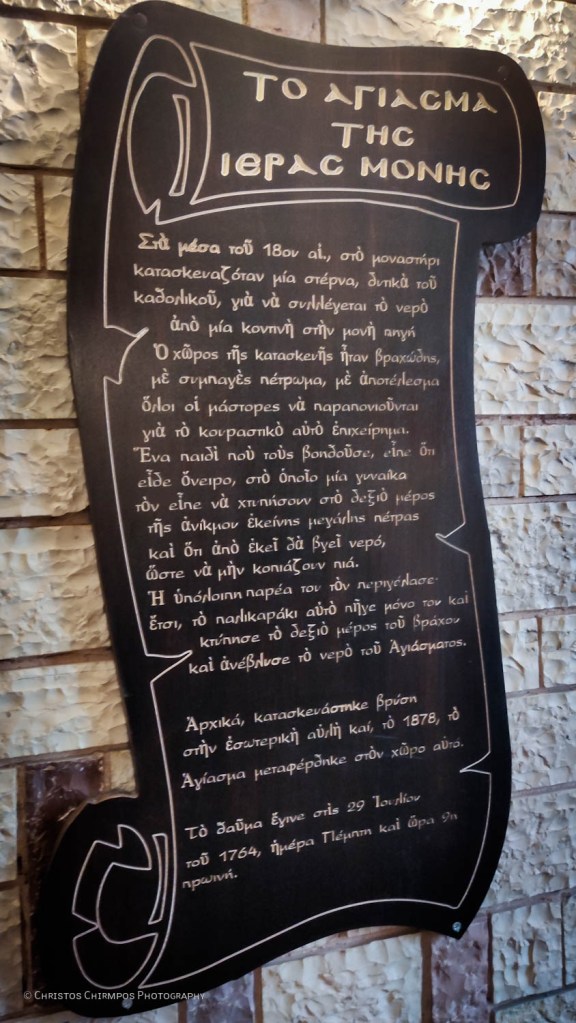 ΤΟ ΑΓΙΑСΜΑ
ΤΗС
ΙΕΡΑС ΜΟΝΗС
Στὰ μέσα τοῦ 18ου αἰ., στὸ μοναστήρι
κατασκευαζόταν μία στέρνα, δυτικὰ τοῦ
καθολικοῦ, γιὰ νὰ συλλέγεται τὸ νερὸ
ἀπὸ μία κοντινὴ στὴν μονὴ πηγή
Ὁ χῶρος τῆς κατασκευῆς ἦταν βραχώδης,
μὲ συμπαγὲς πέτρωμα, μὲ ἀποτέλεσμα
ὅλοι οἱ μάστορες νὰ παραπονιοῦνται
γιὰ τὸ κουραστικὸ αὐτὸ ἐπιχείρημα.
Ἕνα παιδὶ ποὺ τοὺς βοηθοῦσε, εἶπε ὅτι
εἶδε ὄνειρο, στὸ ὁποῖο μία γυναίκα
τὸν εἶπε νὰ χτυπήσουν στὸ δεξιὸ μέρος
τῆς ἀνίκμου ἐκείνης μεγάλης πέτρας
καὶ ὅτι ἀπὸ ἐκεῖ θὰ βγεῖ νερό,
ὥστε νὰ μὴν κοπιάζουν πιά.
Ἡ ὑπόλοιπη παρέα του τὸν περιγέλασε·
ἔτσι, τὸ παλικαράκι αὐτὸ πῆγε μόνο του καὶ
κτύπησε τὸ δεξιὸ μέρος τοῦ βράχου
καὶ ἀνέβλυσε τὸ νερὸ τοῦ Ἁγιάσματος.
Ἀρχικά, κατασκευάστηκε βρύση
στὴν ἐσωτερικὴ αὐλὴ καί, τὸ 1878, τὸ
Ἁγίασμα μεταφέρθηκε στὸν χῶρο αὐτό.
Τὸ θαῦμα ἔγινε στὶς 29 Ἰουλίου
τοῦ 1764, ἡμέρα Πέμπτη καὶ ὥρα 9η
πρωινή.
© CHRISTOS CHIRMPOS PHOTOGRAPHY